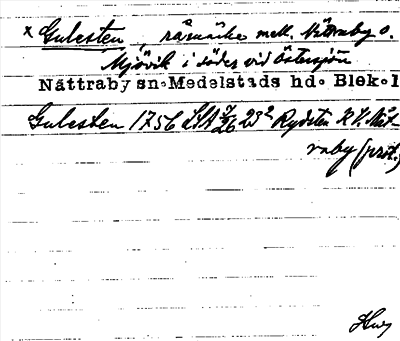 × Gulesten, råmärke mell. Nättraby o.
Mjövik i söder vid Östersjön
Nättraby sn. Medelstads hd. Blek. l
Gulesten 1756 LSA 23² Rydsten K V. Nät-
raby (prot.)